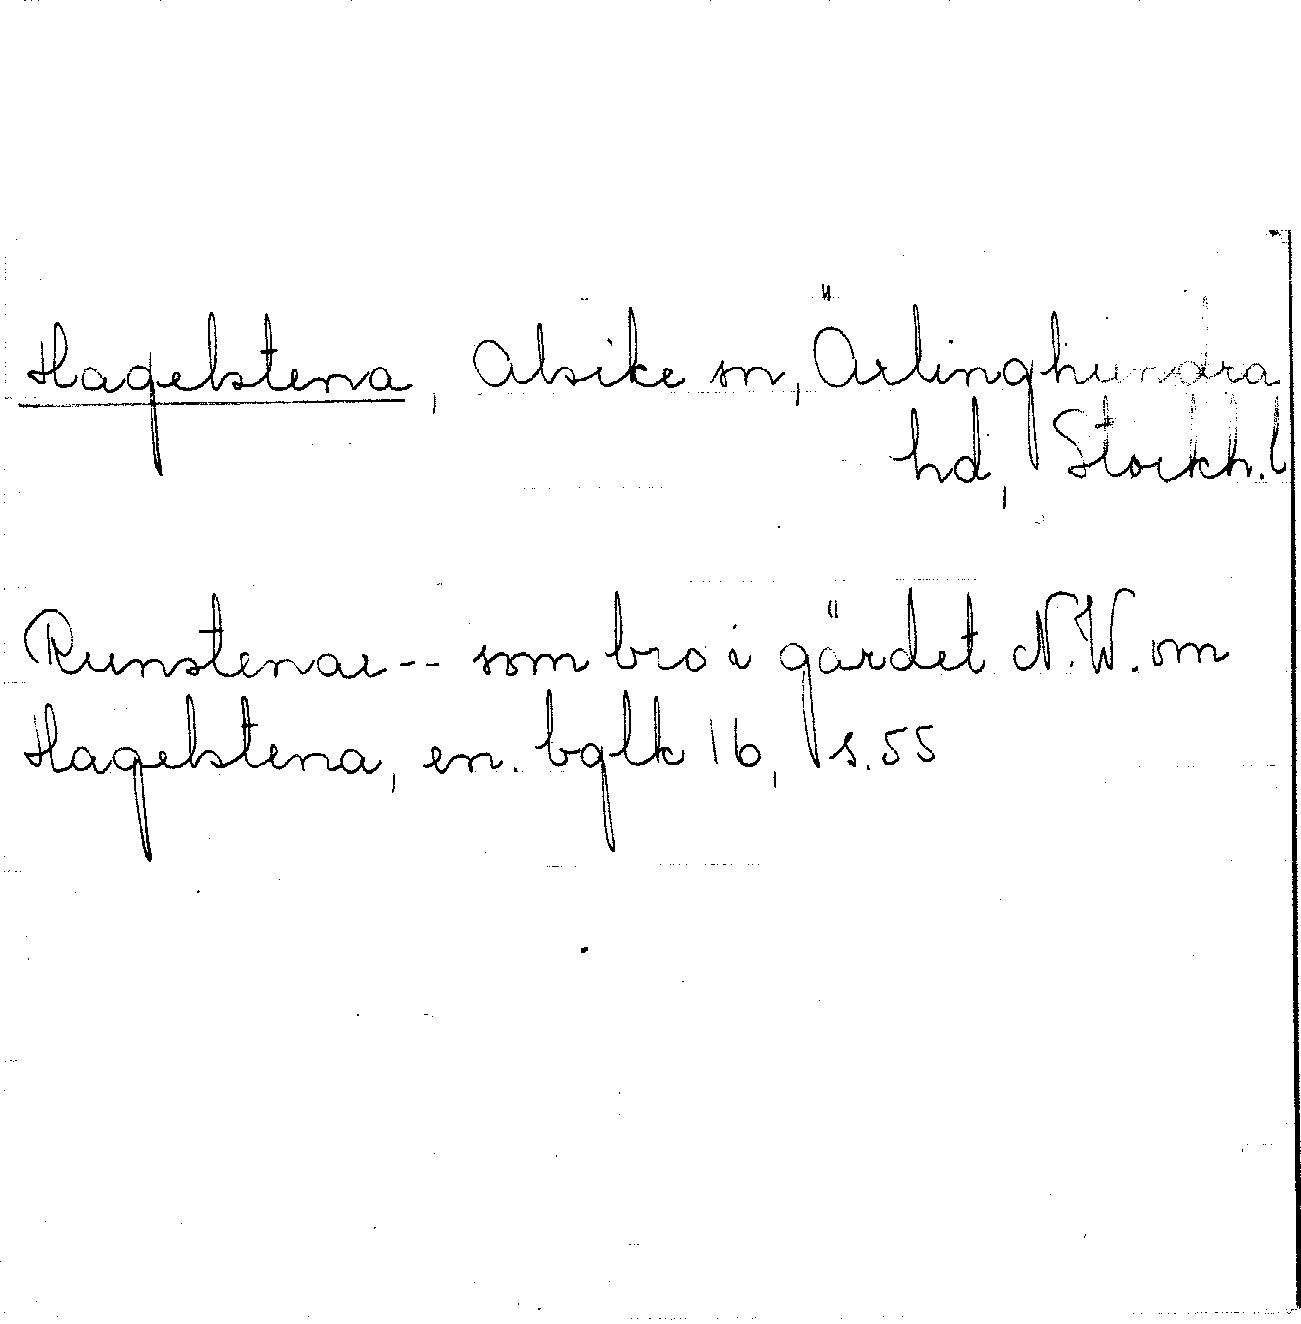 Hagelstena, Alsike sn, Ärlinghundra
hd, Stockh. l
Runstenar -- som bro i gärdet N.W. om
Hagelstena, en. bglk 16, s. 55